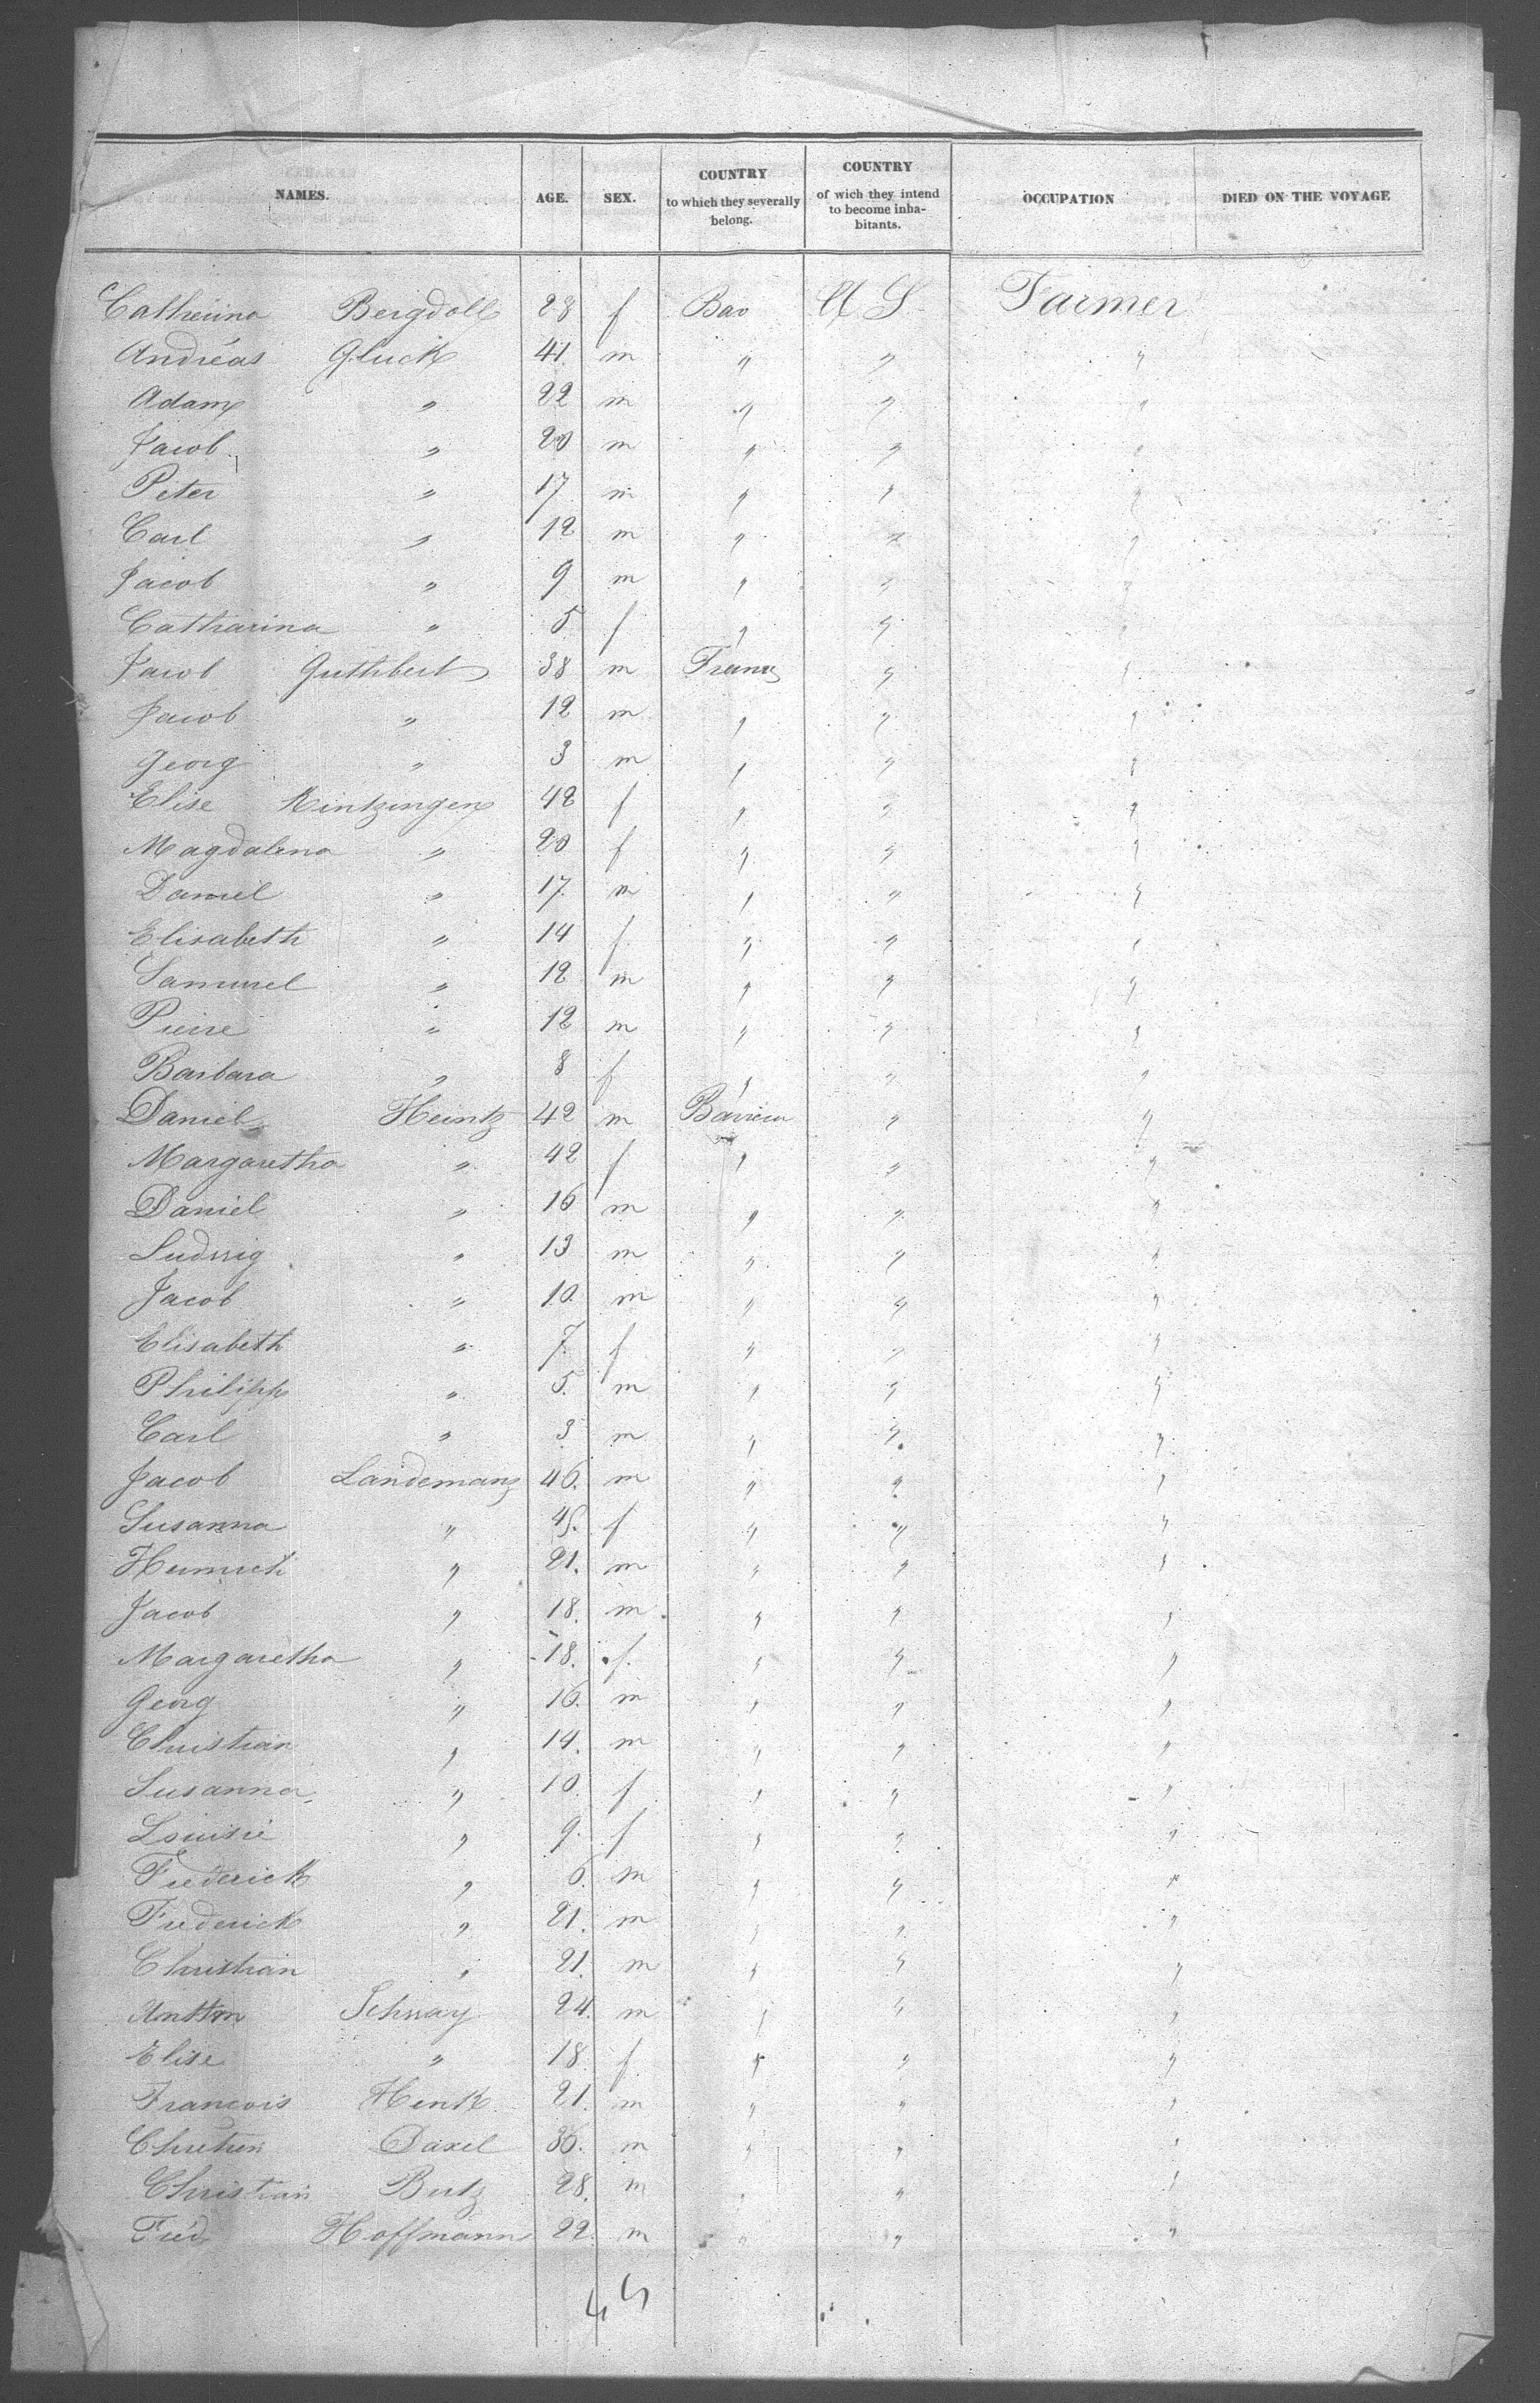 NAMES. AGE. SEX. COUNTRY to which they severally belong. COUNTRY of wich they intend to become inhabitants. OCCUPATION DIED ON THE VOYAGE
Catherina Bergdoll 28 f Bav U S Farmer
Andreas Gluck 41. m " " "
Adam " 22 m " " "
Jacob " 20 m " " "
Peter " 17 m " " "
Carl " 12 m " " "
Jacob " 9 m " " "
Catharina " 5 f " " "
Jacob Guthbert 38 m France " "
Jacob " 12 m " " "
Georg " 3 m " " "
Elise Kintzinger 42 f " " "
Magdalena " 20 f " " "
Daniel " 17. m " " "
Elisabeth " 14 f " " "
Samuel " 12 m " " "
Pierre " 12 m " " "
Barbara " 8 f " " "
Daniel Heintz 42 m Baviera " "
Margaretha " 42 f " " "
Daniel " 16 m " " "
Ludwig " 13 m " " "
Jacob " 10. m " " "
Elisabeth " 7. f " " "
Philipp " 5. m " " "
Carl " 3 m " " "
Jacob Landemann 46. m " " "
Susanna " 45. f " " "
Heinrich " 21. m " " "
Jacob " 18. m " " "
Margaretha " 18. f. " " "
Georg " 16. m " " "
Christian " 14. m " " "
Susanna " 10. f " " "
Louise " 9. f " " "
Frederick " 6. m " " "
Frederick " 21. m " " "
Christian " 21. m " " "
Anton Schway 24. m " " "
Elise " 18 f " " "
Francois Henk 21. m " " "
Chretien Daxel 36. m " " "
Christian Butz 28. m " " "
Fred. Hoffmann 22. m " " "
44